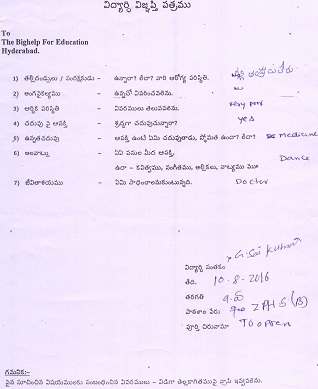 విద్యార్థి విజ్ఞప్తి పత్రము
To
The Bighelp For Education
Hyderabad.
1) తల్లీదండ్రులు / సంరక్షకుడు - ఉన్నారా? లేదా? వారి ఆరోగ్య పరిస్థితి.
2) అంగవైకల్యము - ఉన్నచో వివరించవలెను.
3) ఆర్థిక పరిస్థితి - వివరములు తెలుపవలెను. very poor
4) చదువు పై ఆసక్తి - శ్రద్ధగా చదువుచున్నారా? yes
5) ఉన్నతచదువు - ఆసక్తి ఉంటే ఏమి చదువుతాడు, స్తోమత ఉందా? లేదా? Medicine
6) అలవాట్లు - ఏఏ పనుల మీద ఆసక్తి. Dance
ఉదా - కవిత్వము, సంగీతము, ఆర్టికలు, నాట్యము
7) జీవితాశయము - ఏమి సాధించాలనుకుంటున్నది. Doctor
విద్యార్థి సంతకం G. Sai Kumar
తేది. 10-8-2016
తరగతి
పాఠశాల పేరు ZPHS (B)
పూర్తి చిరునామా Toopran
గమనిక:-
పైన సూచించిన విషయములకు సంబంధించిన వివరములు - విడిగా తెల్లకాగితముపై వ్రాసి ఇవ్వవలెను.